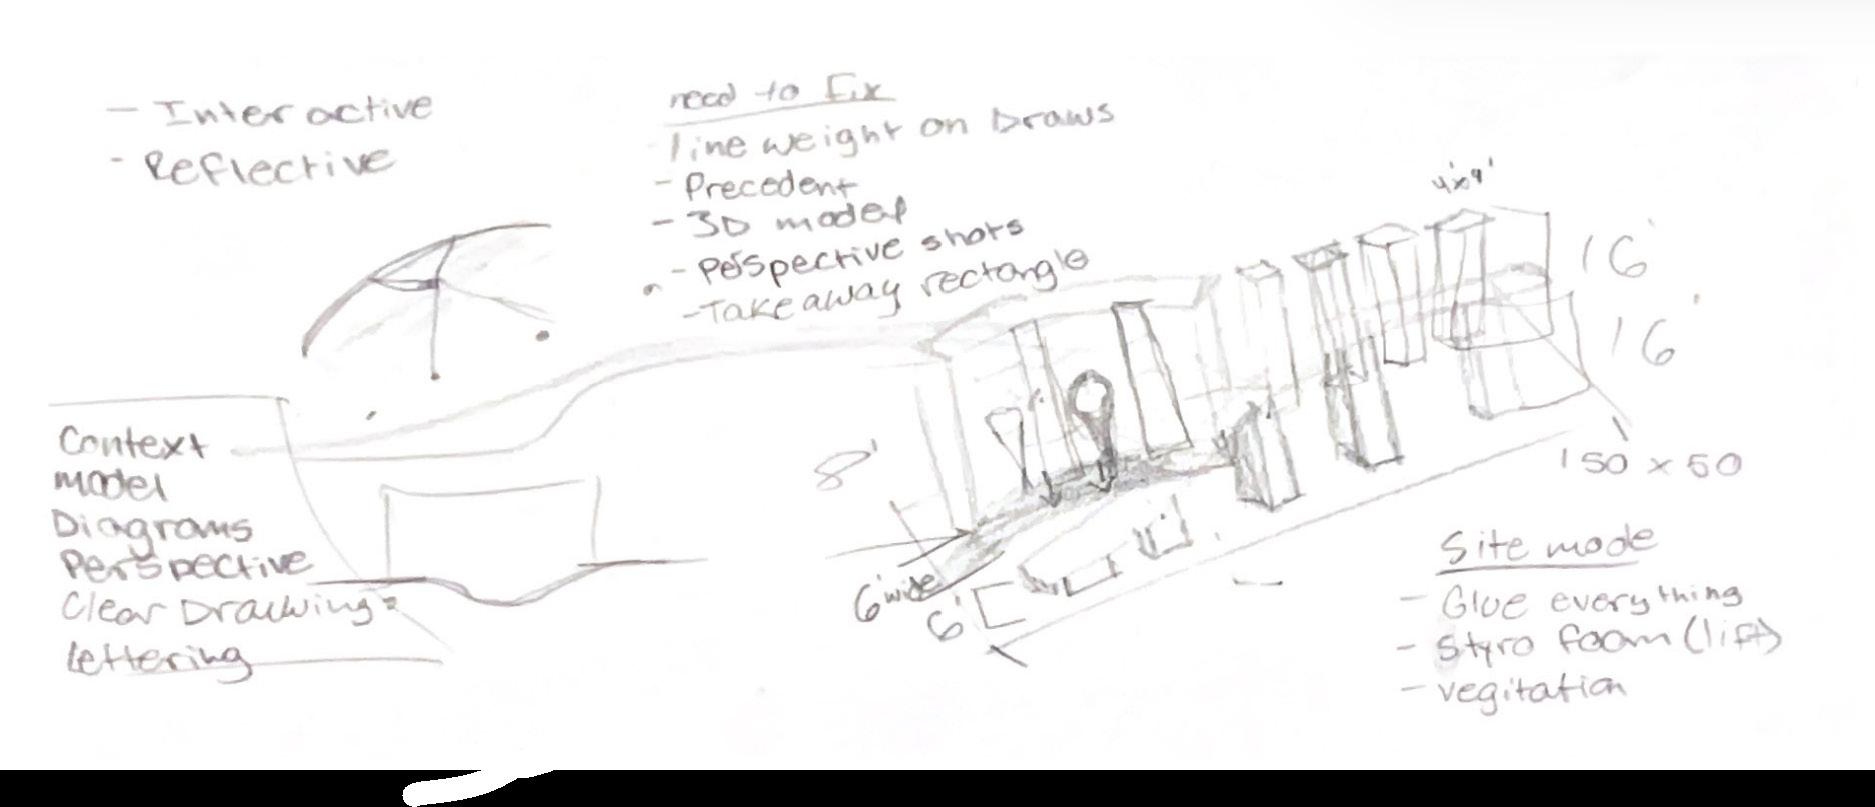 - Interactive
- Reflective
need to Fix
line weight on Draws
- Precedent
- 3D model
- Perspective shots
- Take away rectangle
16'
16'
150 x 50
8'
6' wide
6'
Context
model
Diagrams
Perspective
Clear Drawings
Lettering
Site mode
- Glue everything
- Styro foam (lift)
- vegitation